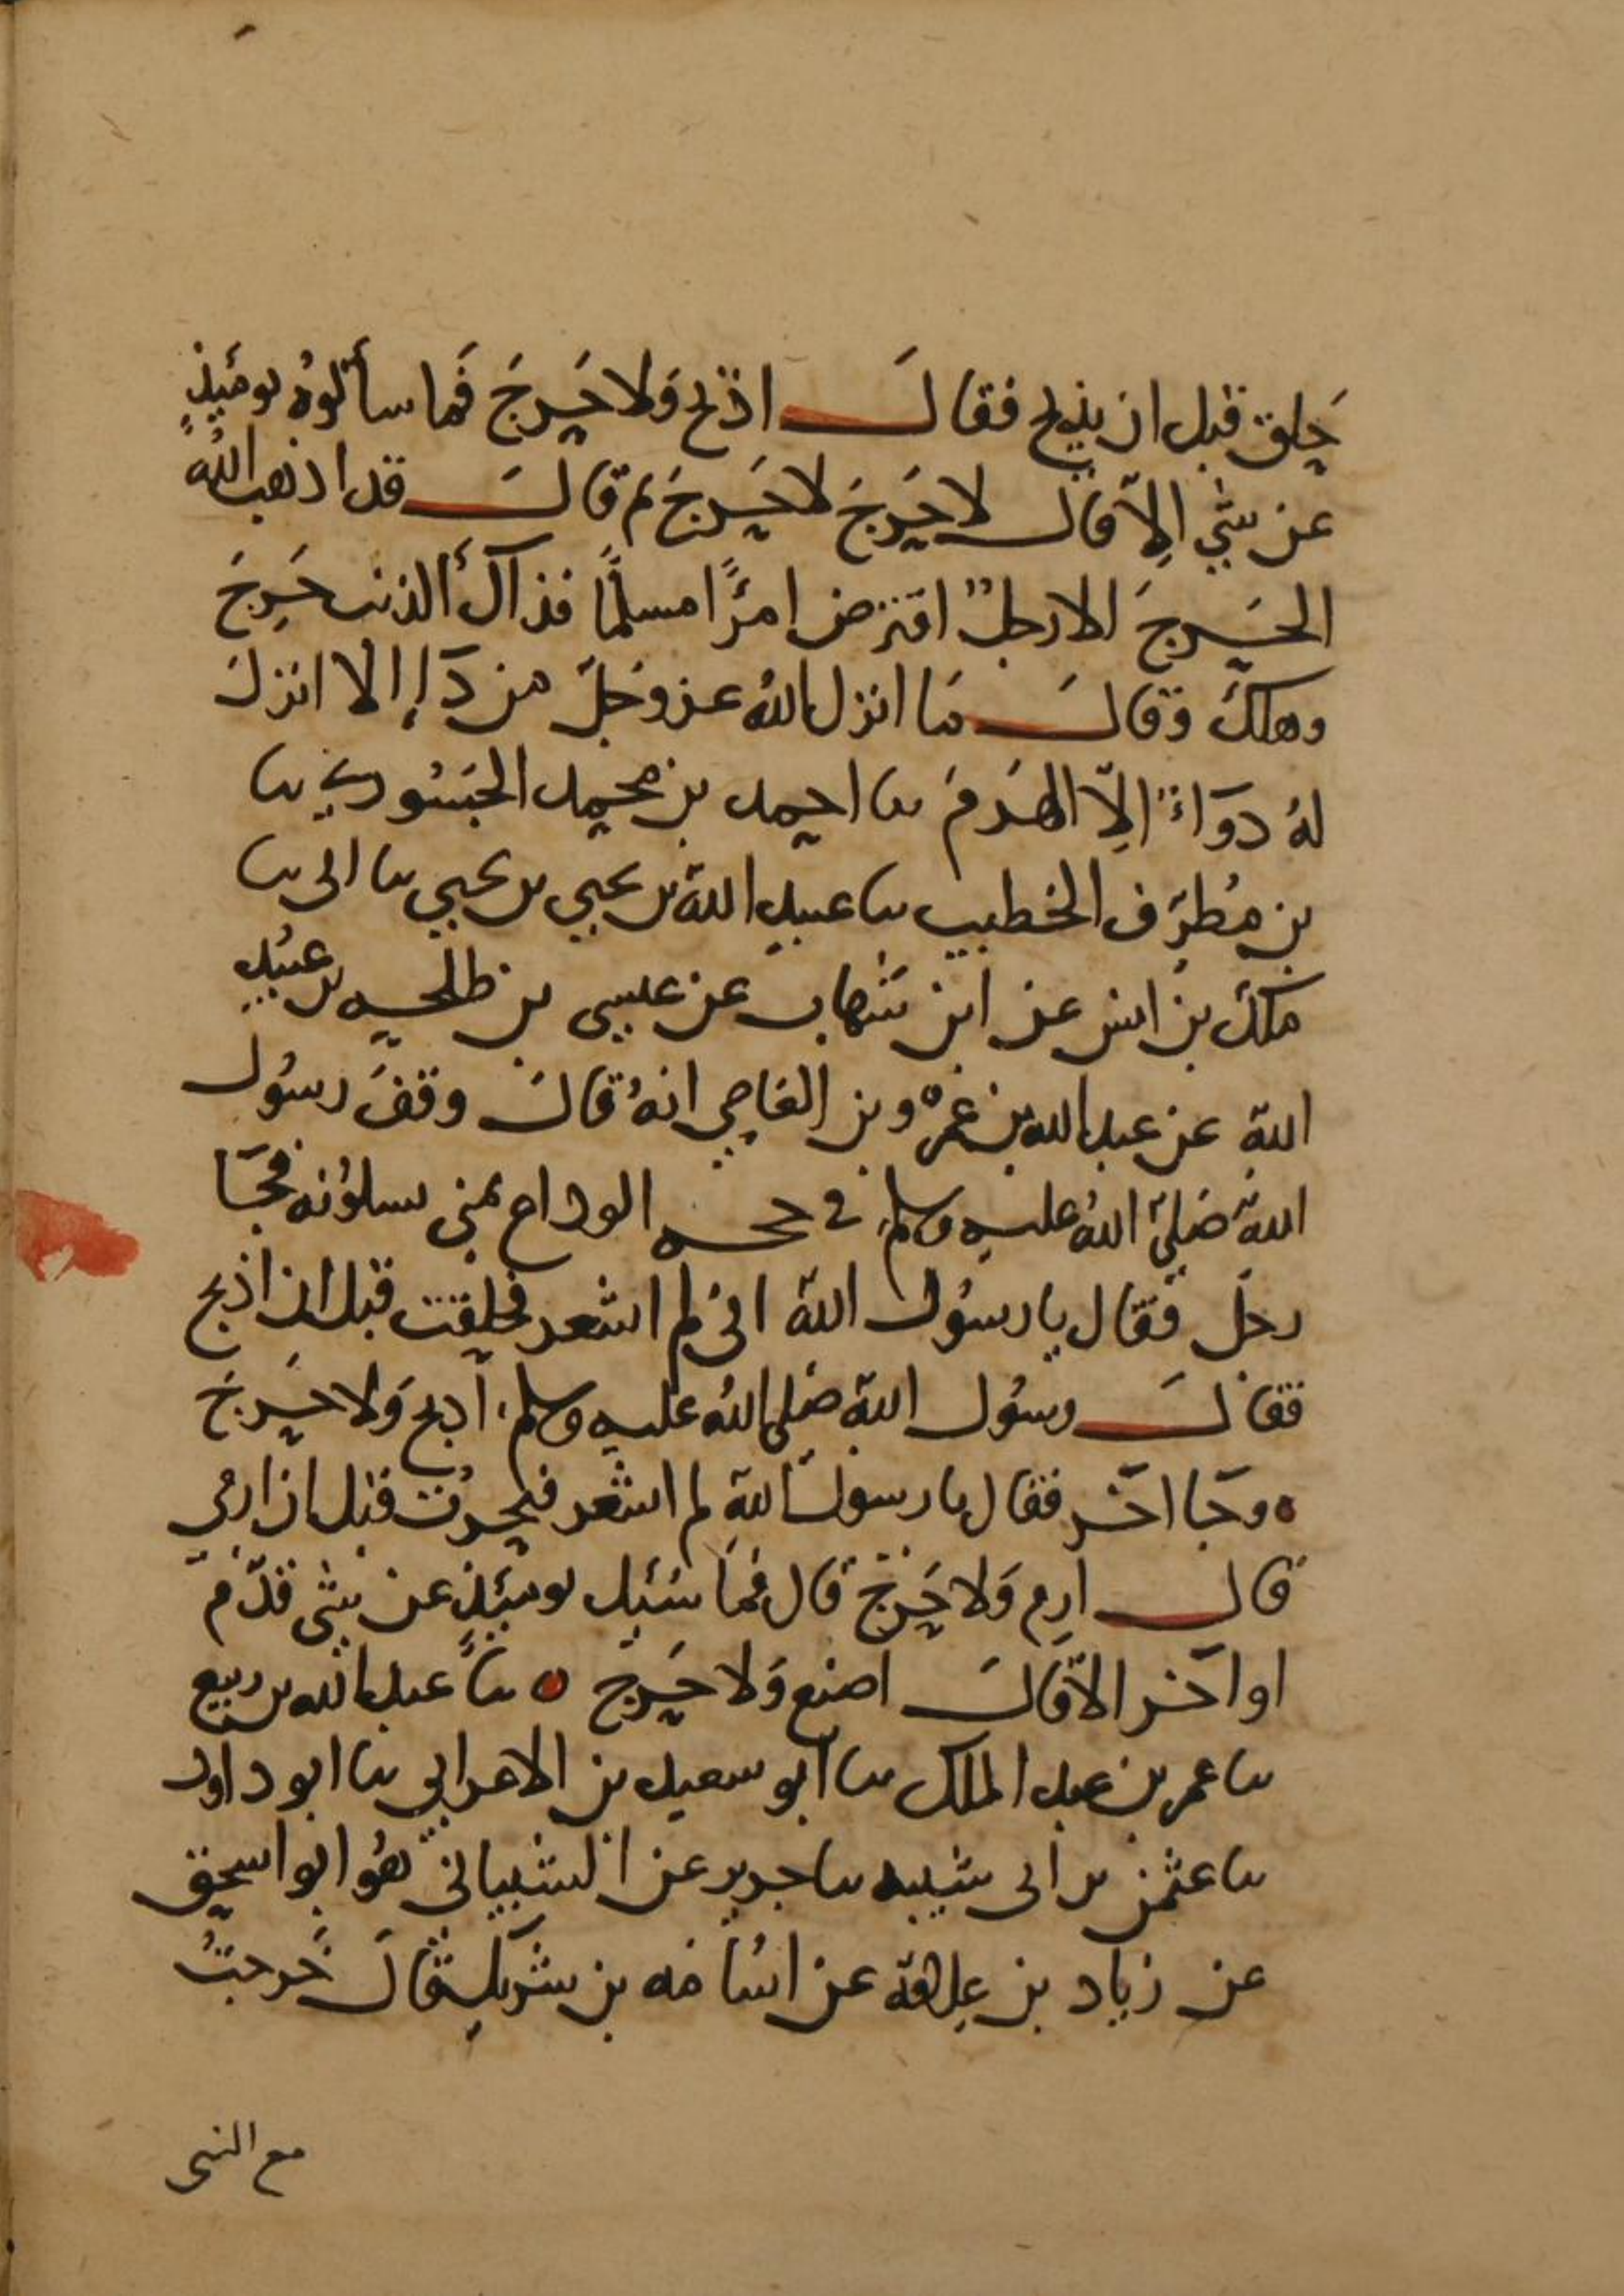 حلق قبل ان يذبح فقال اذبح ولا حَرجَ فما سألوهُ يومَئِذٍ
عن شي اِلّا قال لا حَرجَ لا حَرجَ ثم قال قد اذهب اللهُ
الحَرجَ الا رجلٌ اقترض امرًا مسلمًا فذاكَ الذي حَرِجَ
وهلكَ وقال مَا انزل اللهُ عز وَجلّ من دَاءٍ الا انزلَ
لهُ دوَاءً اِلّا الهَرمَ ثنا احمد بن محمد الجَسُوري ثنا
بن مُطرّف الخطيب ثنا عبيد الله بن يحيي بن يحيي ثنا ابي ثنا
ملكُ بن انس عن ابن شهاب عن عيسى بن طلحه بن عُبيدِ
اللهِ عن عبد الله بن عَمرو بن العَاصِي انهُ قالَ وقفَ رسُول
اللهِ صَلّي اللهُ عليه وسلم في حجه الوداع بمني يسلوُنه فجَا
رجل فقال يا رسُول الله اني لم اشعر فحلقت قبل ان اذبح
فقالَ رسُول اللهِ صَلي اللهُ عليه وسلم، اذبح وَلا حَرجَ
وجَا اخَر فقال يا رسولَ اللهِ لم اشعر فنحرتُ قبل ان ارمي
قال ارِمِ وَلا حَرجَ قال فمَا سُئِل يومَئِذٍ عن شي قدّم
او اخّر الا قَالَ اصنع وَلا حَرج ثنَا عبد الله بن ربيع
ثنا عمر بن عبد الملك ثنا ابو سعيد بن الاعرابي ثنا ابو داود
ثنا عثمن بن ابي شيبه ثنا جرير عن الشيباني هُو ابو اسحق
عن زياد بن عِلاقة عن اسَامَه بن شريكٍ قالَ خَرجتُ
مع النبى